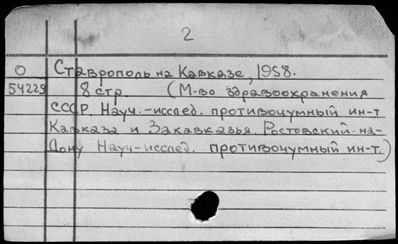 2
О Ставрополь на Кавказе, 1958.
54229 8 стр. (М-во здравоохранения
СССР. Науч.-исслед. противочумный ин-т
Кавказа и Закавказья. Ростовский-на-
Дону Науч-исслед. противочумный ин-т.)